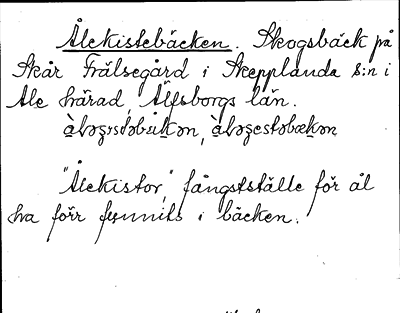 Ålekistebäcken. Skogsbäck på
Skår Frälsegård i Skepplanda s:n i
Ale härad, Älfsborgs län.
"Ålekistor," fångstställe för ål
ha förr funnits i bäcken.